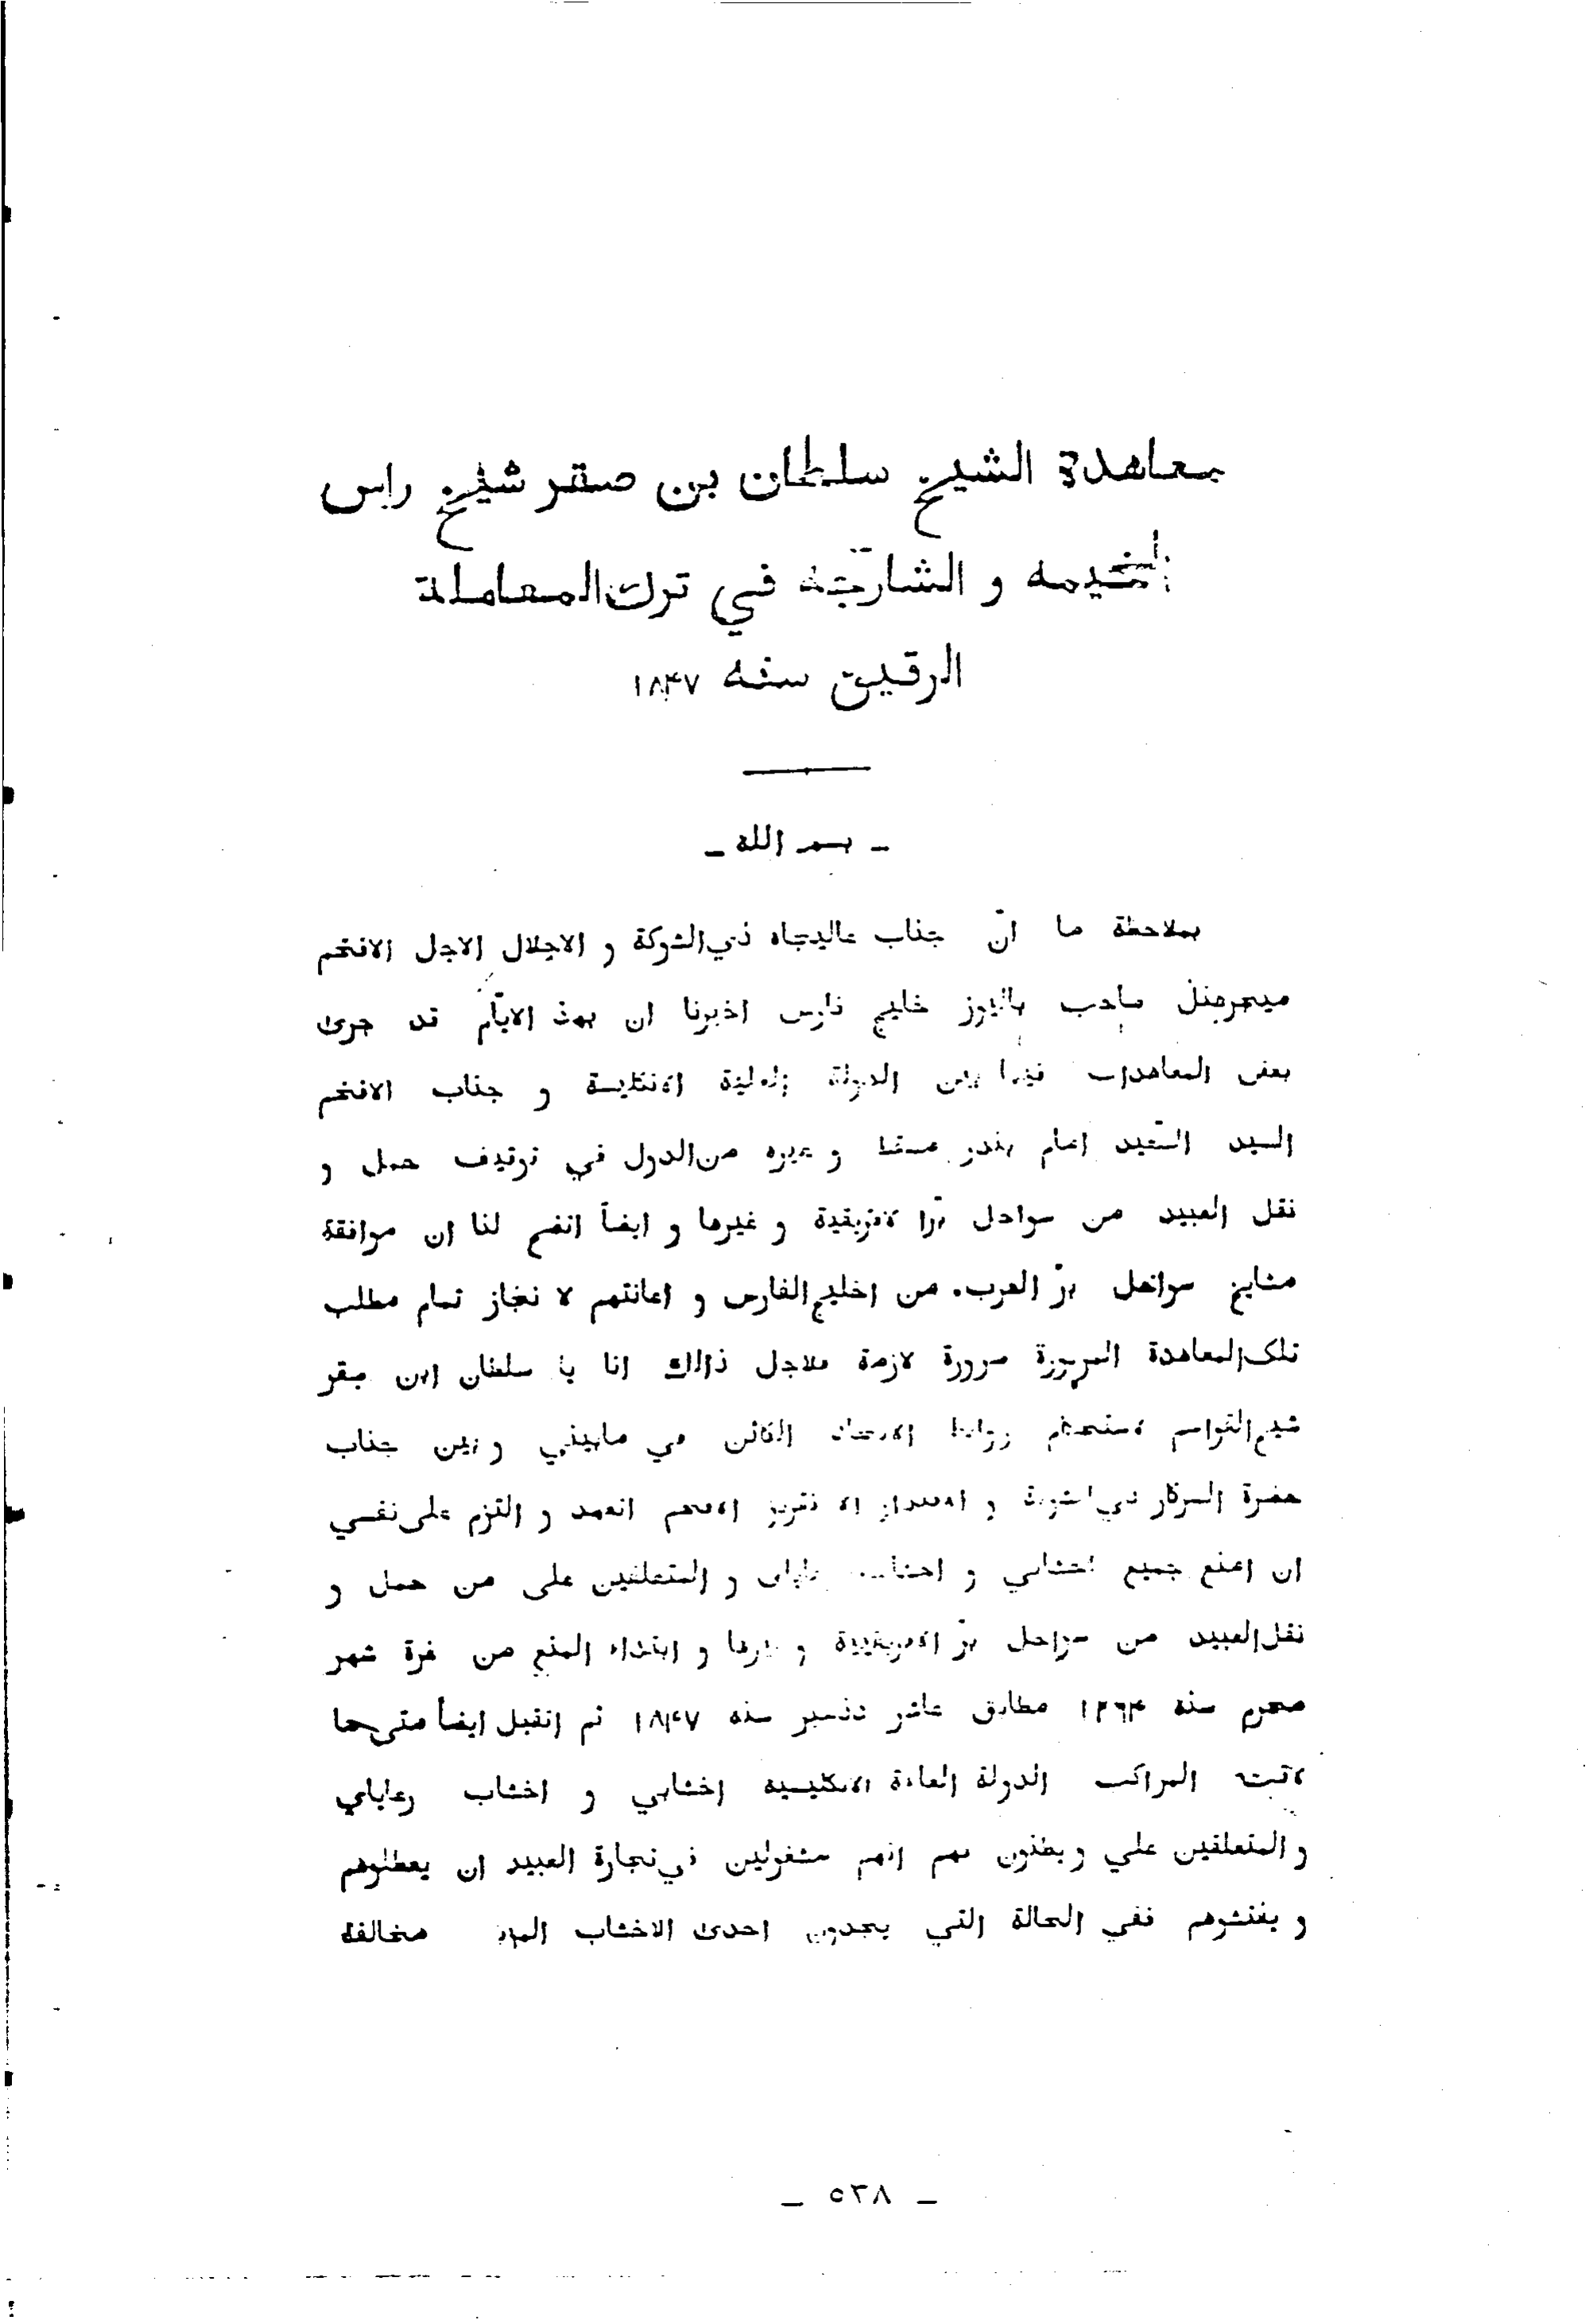 معاهدة الشيخ سلطان بن صقر شيخ راس
الخيمه و الشارجه في ترك المعاملة
الرقيق سنه ۱۸۴۷
ـ بسم الله ـ
بملاحظة ما انّ جناب عاليجاه ذي الشوكة و الاجلال الاجل الافخم
ميجر هنل صاحب باليوز خليج فارس اخبرنا ان بهذ الايّام قد جرى
بعض المعاهدات فيما بين الدولة العلية الانكليسة و جناب الافخم
السيد السّعيد امام بندر مسقط و غيره من الدول في توقيف حمل و
نقل العبيد من سواحل برّ الافريقية و غيرها و ايضاً اتضح لنا ان موافقة
مشايخ سواحل برّ العرب من اخليج الفارس و اعانتهم لا نجاز تمام مطلب
تلك المعاهدة المزبورة ضرورة لازمة فلاجل ذالك انا يا سلطان ابن صقر
شيخ القواسم لاستحكام روابط الاتحاد الكائن في مابيني و بين جناب
حضرة السركار ذي الشوكة و الافخم اتعهد و التزم على نفسي
ان امنع جميع اخشابي و اخشاب رعاياي و المتعلقين على من حمل و
نقل العبيد من سواحل برّ الافريقية و غيرها و ابتداء المنع من غرة شهر
محرم سنه ۱۲۶۴ مطابق عاشر دنسبر سنه ۱۸۴۷ ثم اتقبل ايضاً متى ما
لاقت المراكب الدولة العلية الانكليسيه اخشابي و اخشاب رعاياي
و المتعلقين علي و يظنون بهم انهم مشغولين في تجارة العبيد ان يعطلوهم
و يفتشوهم ففي الحالة التي يجدون احدى الاخشاب مخالفة
ـ ٥٣٨ ـ